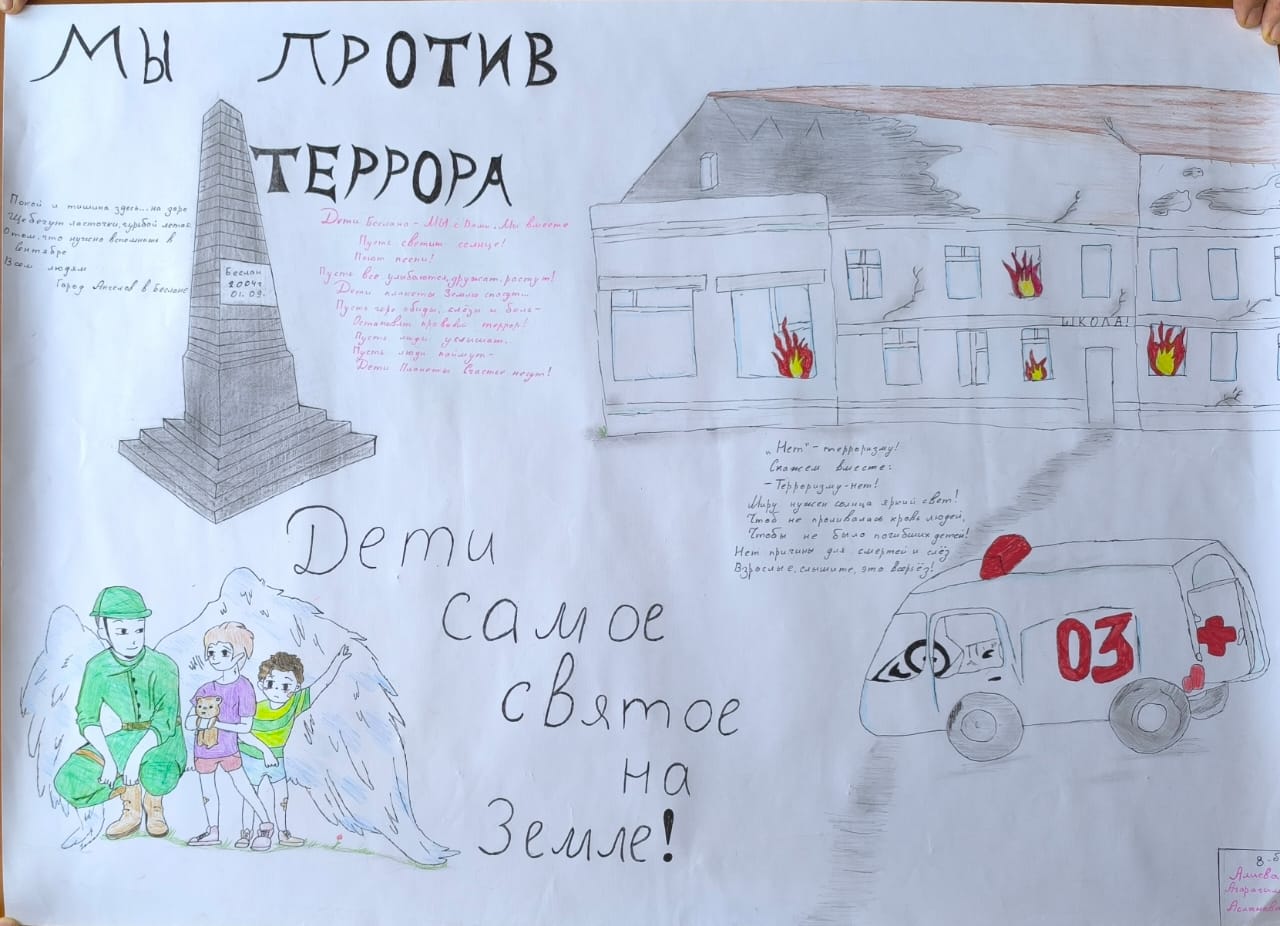 МЫ ПРОТИВ
ТЕРРОРА
Покой и тишина здесь... на заре
Щебечут ласточки, гурьбой летая
О том, что нужно вспомнить в
Сентябре
Всем людям
Город Ангелов в Беслане
Беслан
2004г
01.09.
Дети Беслана - МЫ с Вами, Мы вместе
Пусть светит солнце!
Поют песни!
Пусть все улыбаются, дружат, растут!
Дети планеты Землю спасут...
Пусть горе обиды, слёзы и боль-
Остановят кровавый террор!
Пусть люди услышат,
Пусть люди поймут-
Дети Планеты Счастье несут!
ШКОЛА!
„Нет" - терроризму!
Скажем вместе:
- Терроризму - нет!
Миру нужен солнца яркий свет!
Чтоб не проливалась кровь людей,
Чтобы не было погибших детей!
Нет причины для смертей и слёз
Взрослые, слышите, это всерьёз!
03
Дети
самое
святое
на
Земле!
8-б
Алиева